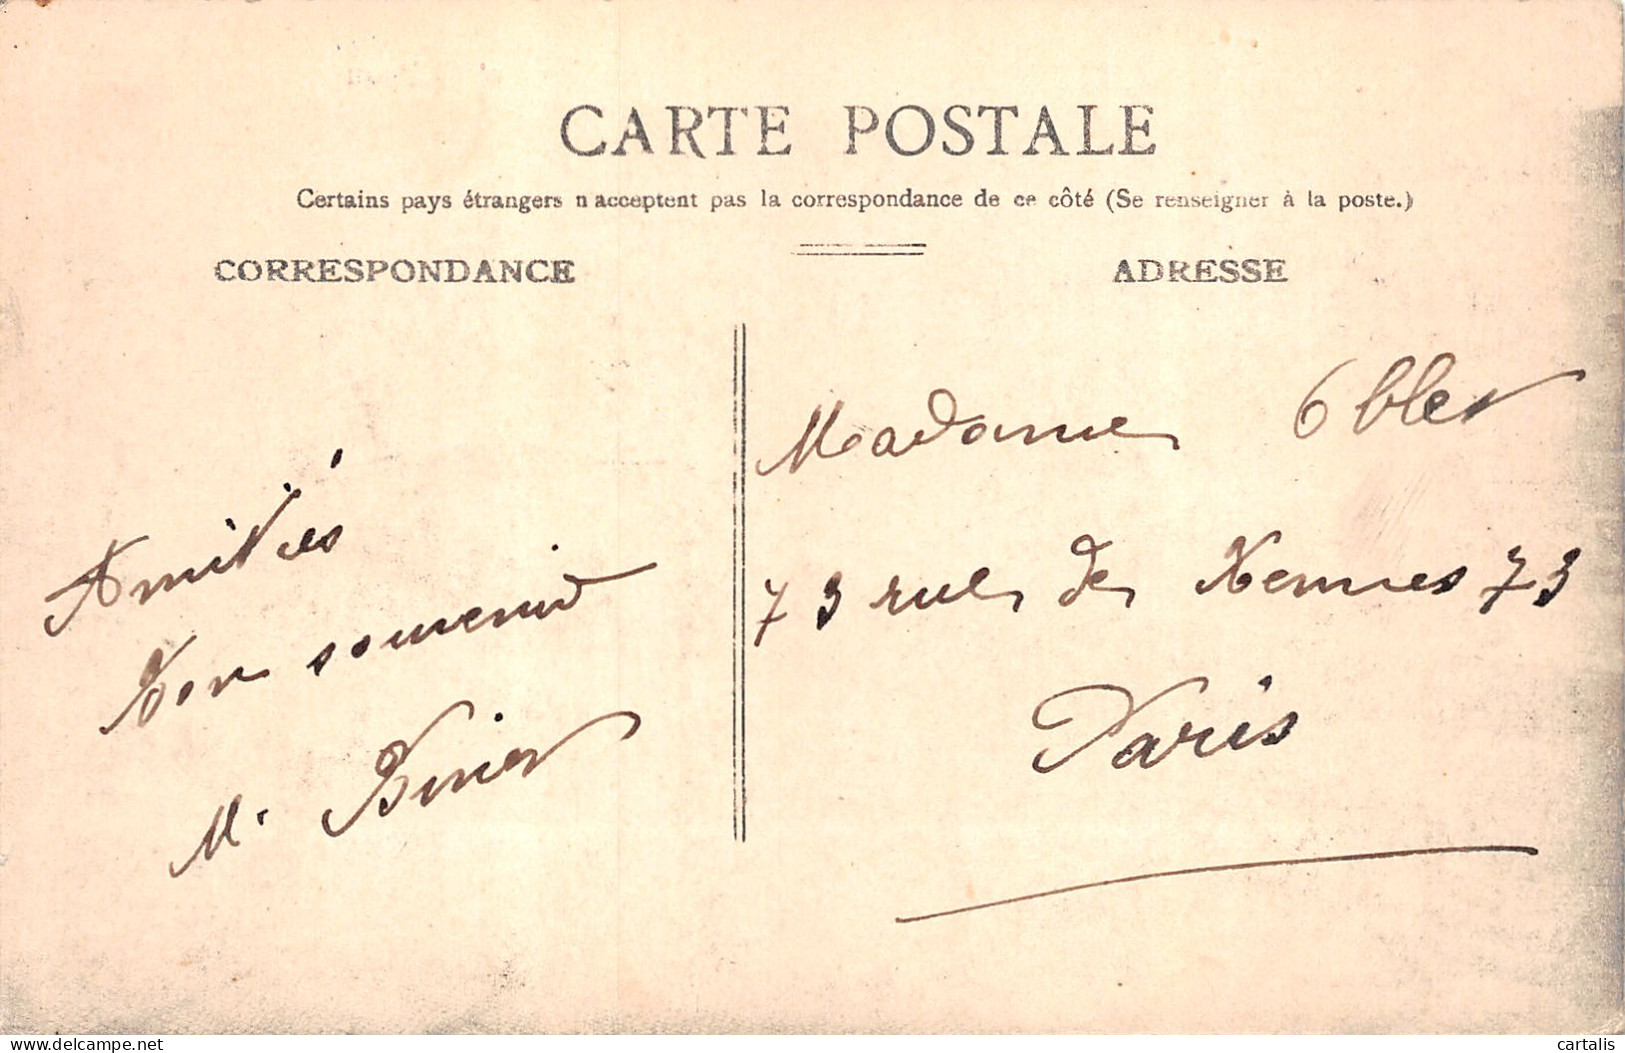 CARTE POSTALE
Certains pays étrangers n'acceptent pas la correspondance de ce côté (Se renseigner à la poste.)
CORRESPONDANCE
ADRESSE
Amitiés
bon souvenir
M.
Madame
73 rue de Rennes 73
Paris
cartalis
delcampe.net